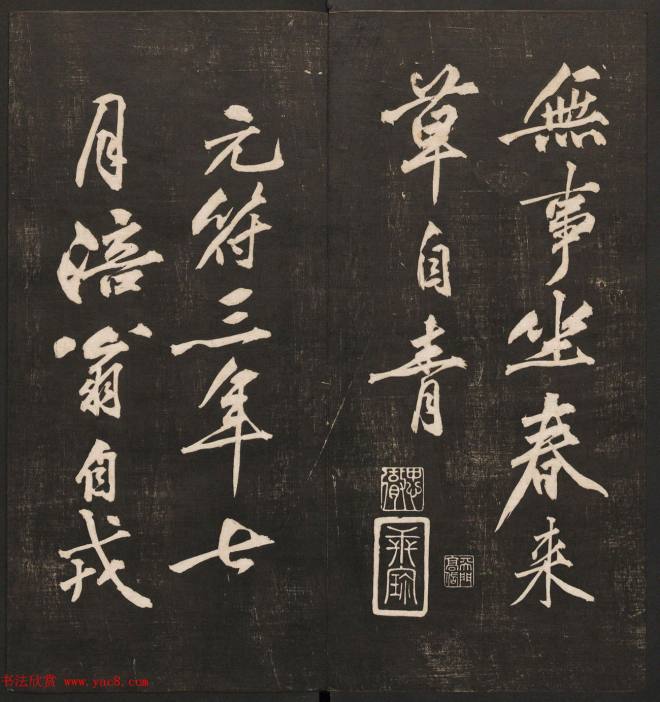 無事坐春来
草自青
元符三年七
月涪翁自戎
書法欣赏 www.ync8.com